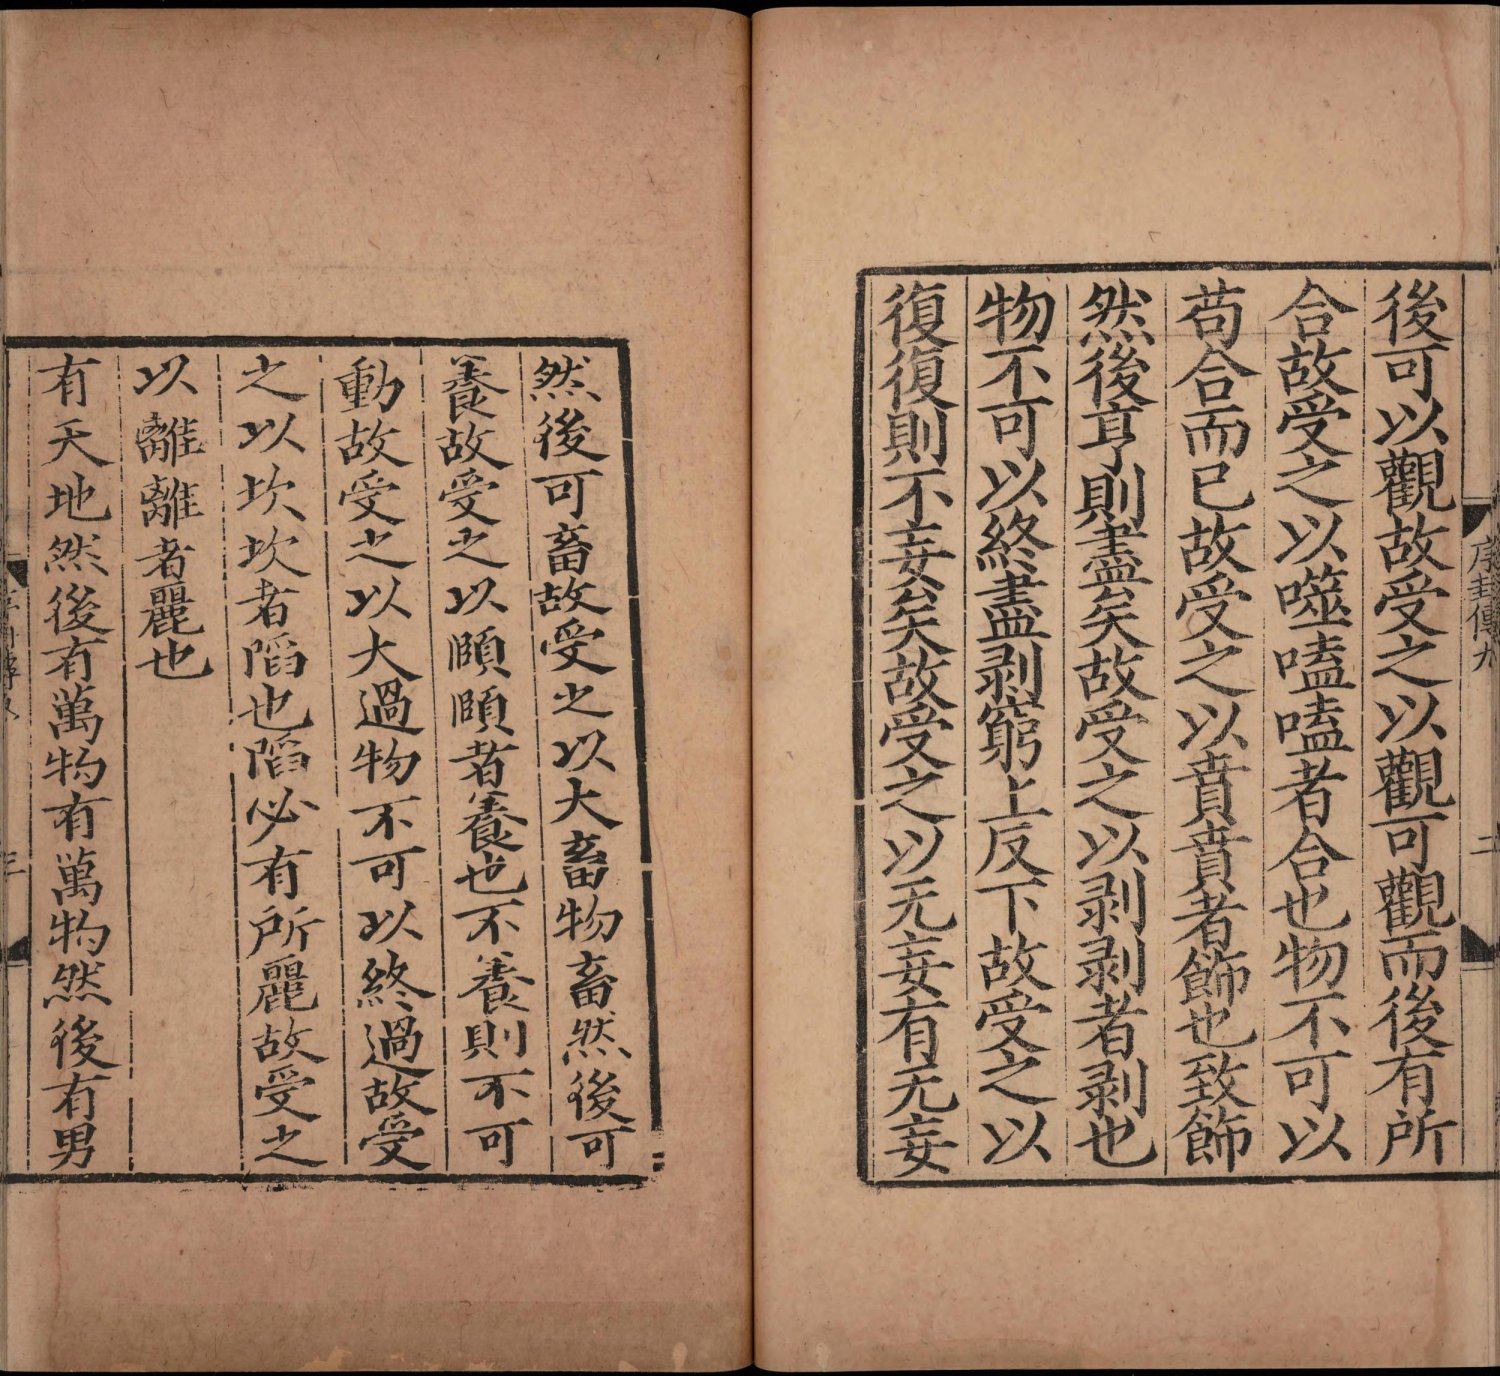 序卦傳九
二
後可以觀故受之以觀可觀而後有所
合故受之以噬嗑嗑者合也物不可以
苟合而已故受之以賁賁者飾也致飾
然後亨則盡矣故受之以剥剥者剥也
物不可以終盡剥窮上反下故受之以
復復則不妄矣故受之以无妄有无妄
然後可畜故受之以大畜物畜然後可
養故受之以頤頤者養也不養則不可
動故受之以大過物不可以終過故受
之以坎坎者陷也陷必有所麗故受之
以離離者麗也
有天地然後有萬物有萬物然後有男
三